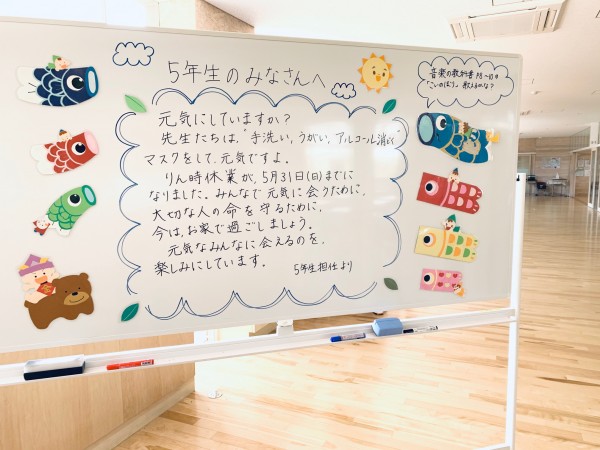 5年生のみなさんへ
音楽の教科書P8〜10の
「こいのぼり」歌えるかな?
元気にしていますか?
先生たちは、"手洗い,うがい,アルコール消毒"
マスクをして、元気ですよ。
りん時休業が、5月31日(日)までに
なりました。みんなで元気に会うために、
大切な人の命を守るために、
今は、お家で過ごしましょう。
元気なみんなに会えるのを、
楽しみにしています。
5年生担任より